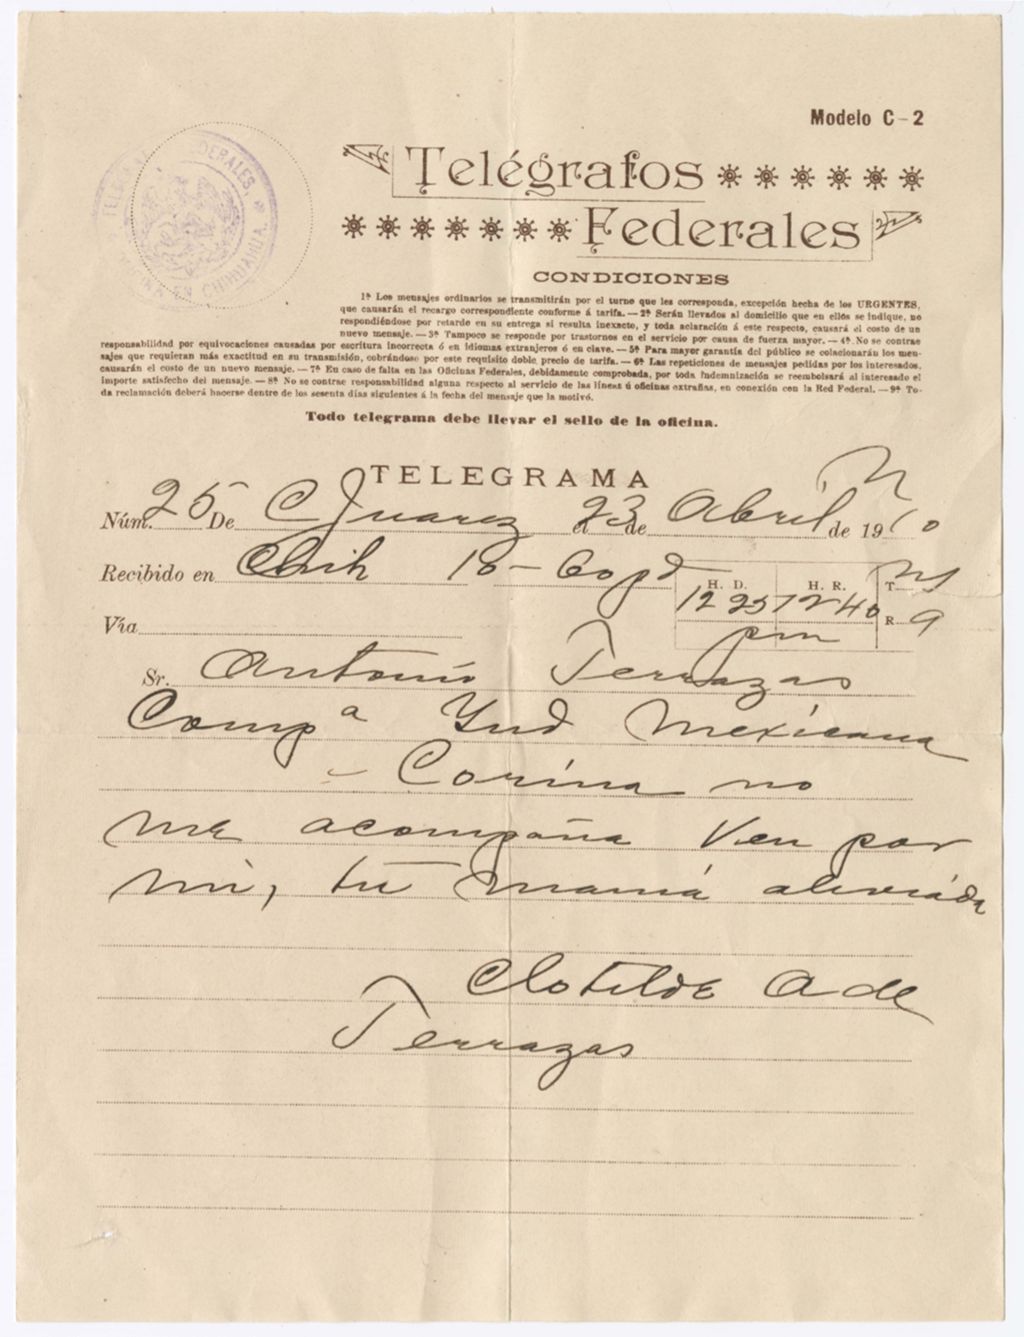 Modelo C-2
TELEGRAFOS FEDERALES,
OFICINA EN CHIHUAHUA.
Telégrafos
Federales
CONDICIONES
1ª Los mensajes ordinarios se transmitirán por el turno que les corresponda, excepción hecha de los URGENTES,
que causarán el recargo correspondiente conforme á tarifa.—2ª Serán llevados al domicilio que en ellos se indique, no
respondiéndose por retarde en su entrega si resulta inexacto, y toda aclaración á este respecto, causará el costo de un
nuevo mensaje.—3ª Tampoco se responde por trastornos en el servicio por causa de fuerza mayor.—4ª No se contrae
responsabilidad por equivocaciones causadas por escritura incorrecta ó en idiomas extranjeros ó en clave.—5ª Para mayor garantía del público se colacionarán los men-
sajes que requieran más exactitud en su transmisión, cobrándose por este requisito doble precio de tarifa.—6ª Las repeticiones de mensajes pedidas por los interesados,
causarán el costo de un nuevo mensaje.—7ª En caso de falta en las Oficinas Federales, debidamente comprobada, por toda indemnización se reembolsará al interesado el
importe satisfecho del mensaje.—8ª No se contrae responsabilidad alguna respecto al servicio de las líneas ú oficinas extrañas, en conexión con la Red Federal.—9ª To-
da reclamación deberá hacerse dentro de los sesenta días siguientes á la fecha del mensaje que la motivó.
Todo telegrama debe llevar el sello de la oficina.
TELEGRAMA
Núm. 25 De C Juarez el 23 de Abril de 1910
Recibido en Chih 18-
H. D. H. R. T.
12 25 12 40 R. 9
Vía pm
Sr. Antonio Terrazas
Compª Ynd Mexicana
Corina no
me acompaña Ven por
mi, tu mamá aliviada
Clotilde A de
Terrazas